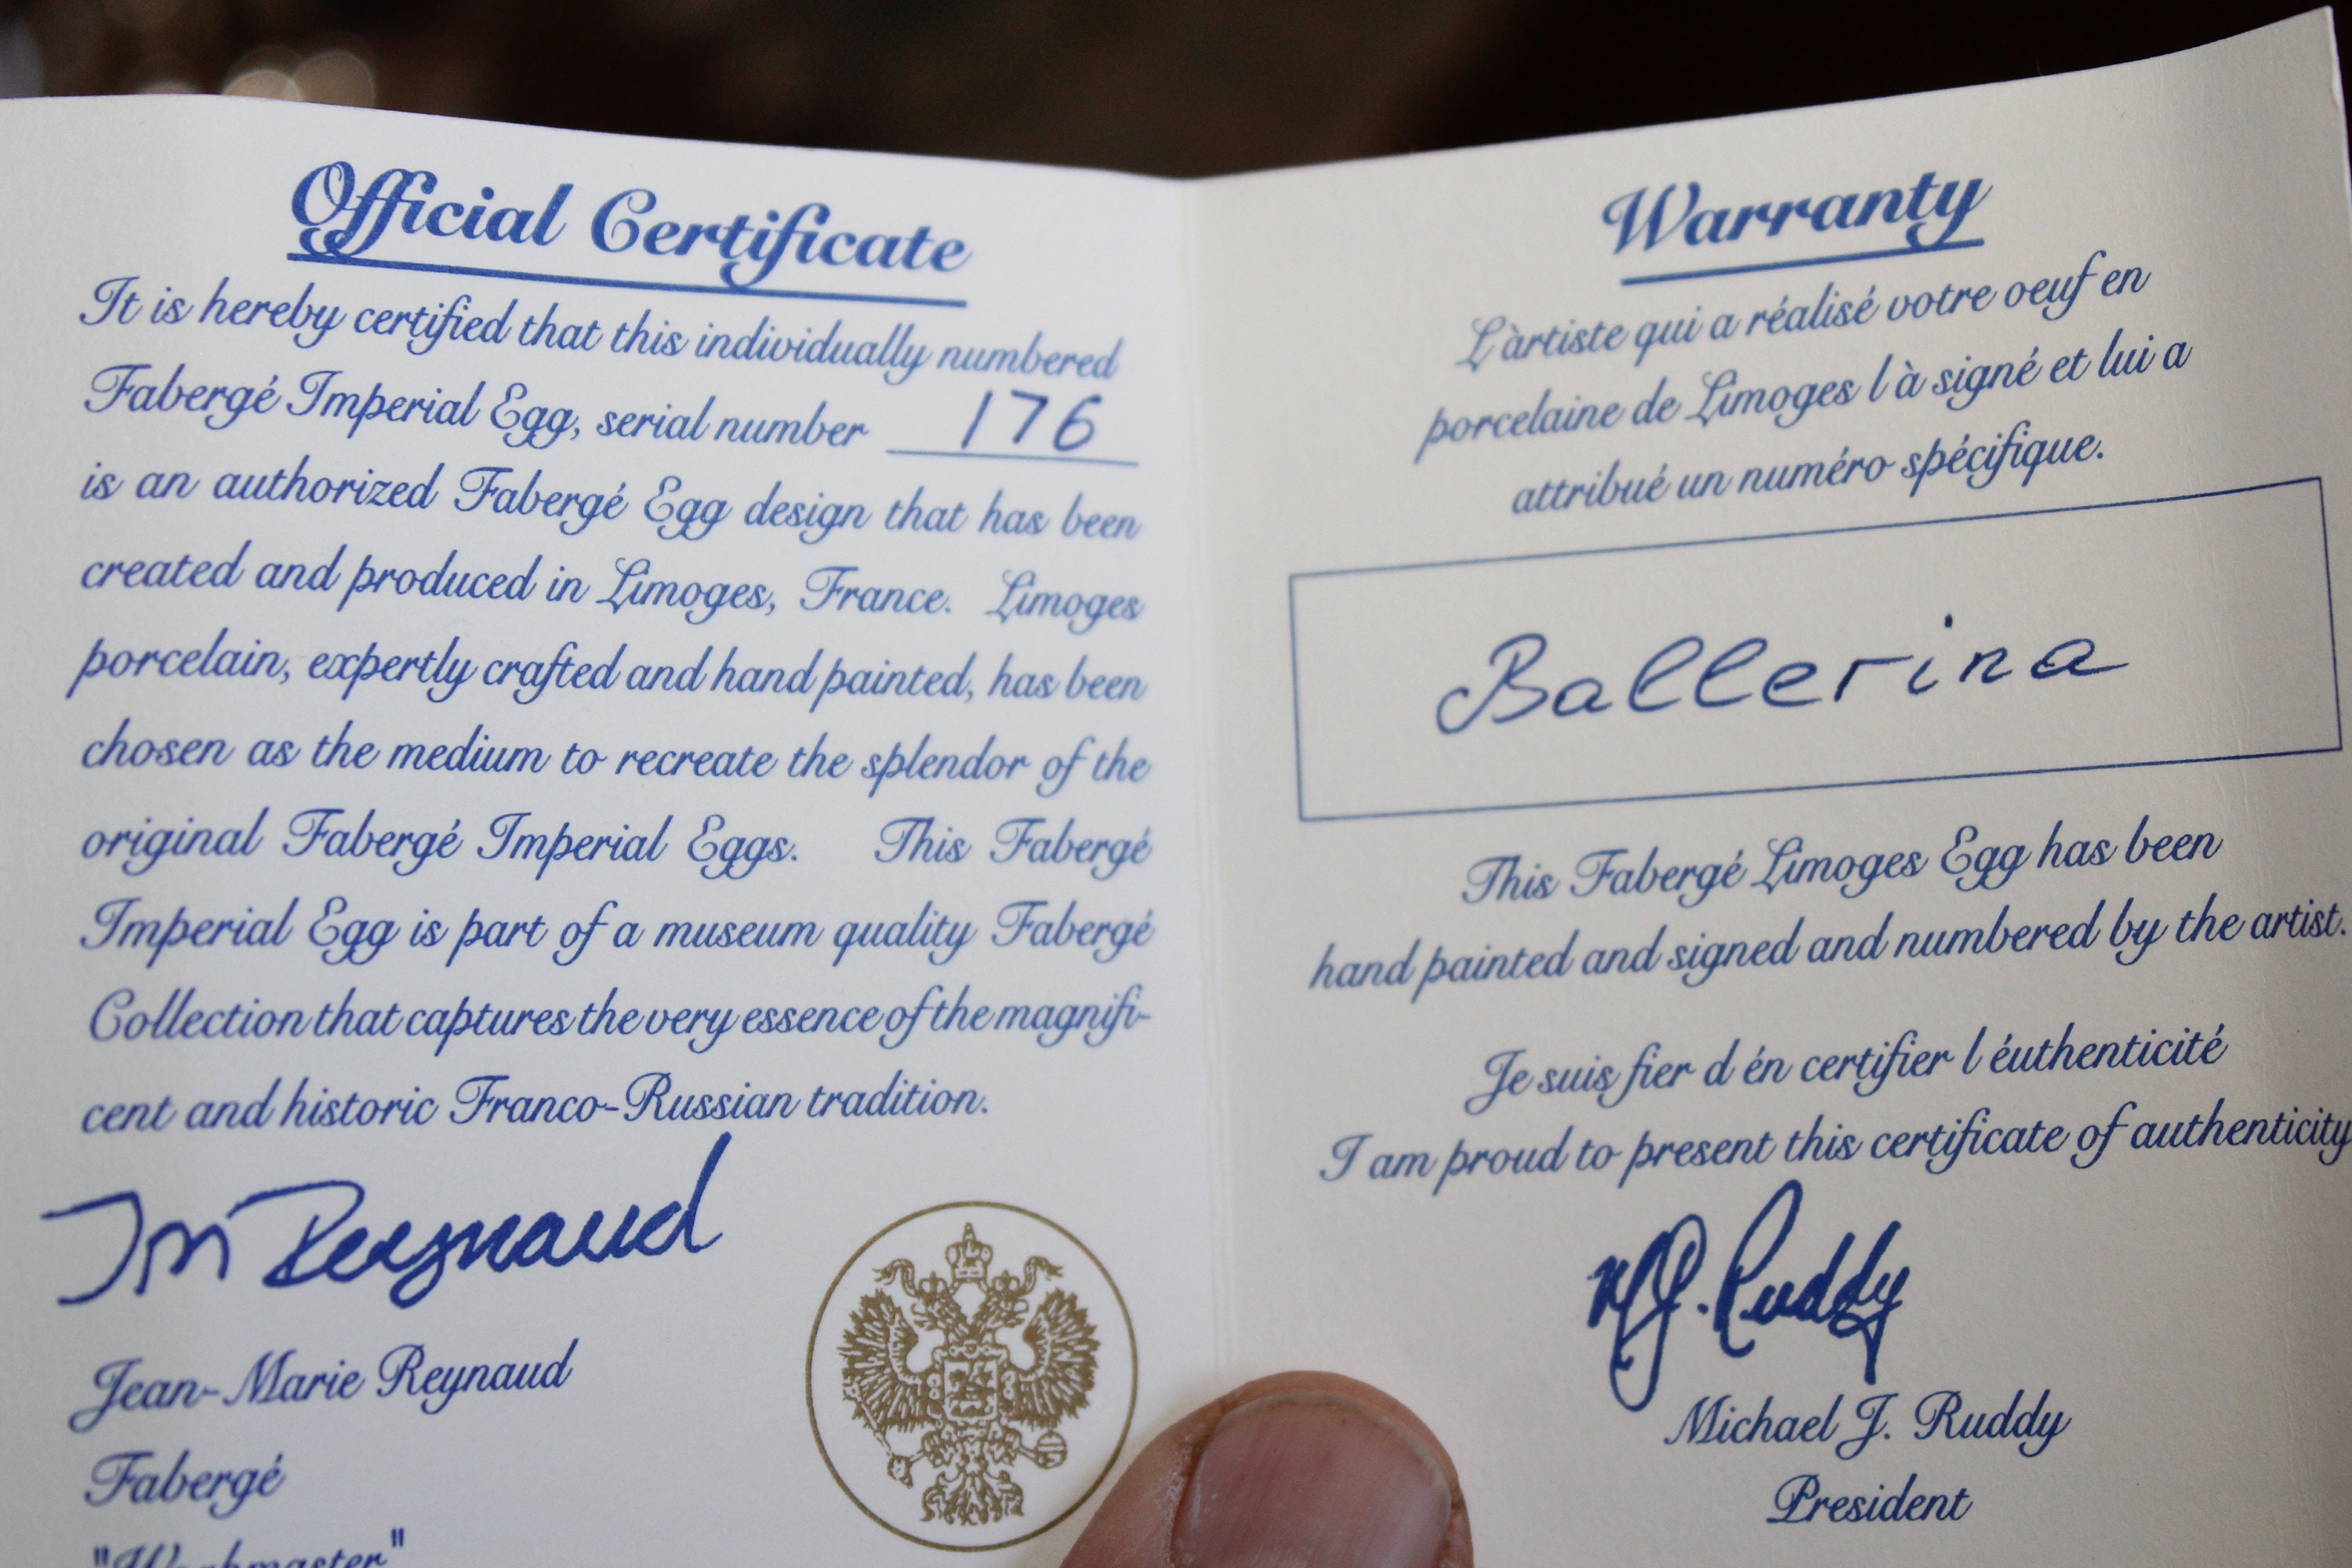 Official Certificate
It is hereby certified that this individually numbered
Fabergé Imperial Egg, serial number 176
is an authorized Fabergé Egg design that has been
created and produced in Limoges, France. Limoges
porcelain, expertly crafted and hand painted, has been
chosen as the medium to recreate the splendor of the
original Fabergé Imperial Eggs. This Fabergé
Imperial Egg is part of a museum quality Fabergé
Collection that captures the very essence of the magnifi-
cent and historic Franco-Russian tradition.
JM Reynaud
Jean-Marie Reynaud
Fabergé
"Workmaster"
Warranty
L'àrtiste qui a réalisé votre oeuf en
porcelaine de Limoges l à signé et lui a
attribué un numéro spécifique.
Ballerina
This Fabergé Limoges Egg has been
hand painted and signed and numbered by the artist.
Je suis fier d én certifier l éuthenticité
I am proud to present this certificate of authenticity
MJ. Ruddy
Michael J. Ruddy
President